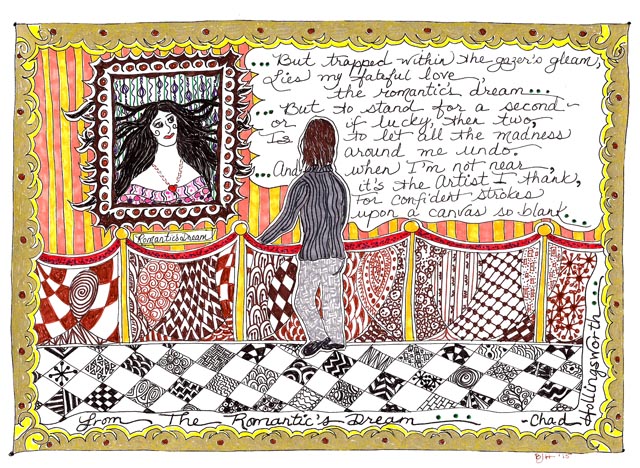 ... But trapped within the gazer's gleam,
Lies my fateful love,
the romantic's dream...
... But to stand for a second
or if lucky, then two,
Is to let all the madness
around me undo.
...And when I'm not near,
it's the Artist I thank,
For confident strokes
upon a canvas so blank...
Romantic's Dream
from The Romantic's Dream ....
-Chad
Hollingsworth....
BJH '15